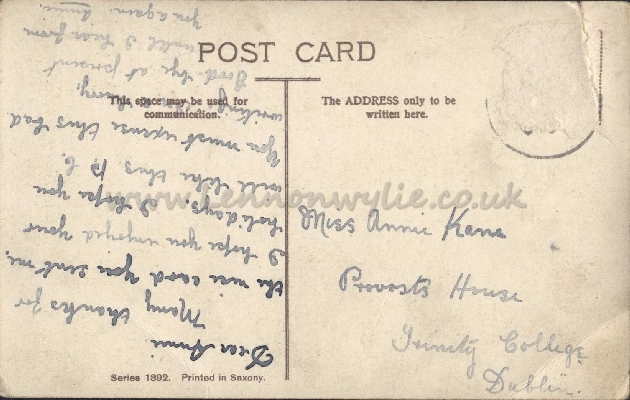 POST CARD
This space may be used for
communication.
The ADDRESS only to be
written here.
Dear Anni
Many thanks for
the nice card you sent me.
I hope you enjoyed your
holidays. I hope you
will like this P. C.
You must excuse this bad
writing, hurry.
Good bye at present
until I hear from
you again. Annie.
Miss Annie Kane
Provosts House
Trinity College
Dublin.
Series 1892. Printed in Saxony.
www.lennonwylie.co.uk